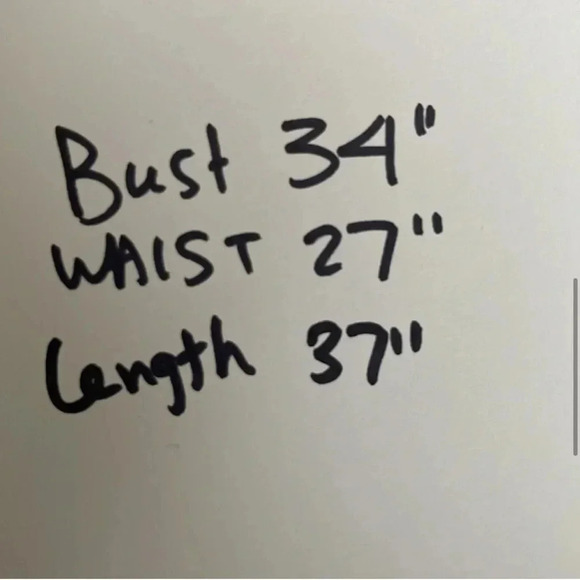 Bust 34"
WAIST 27"
Length 37"